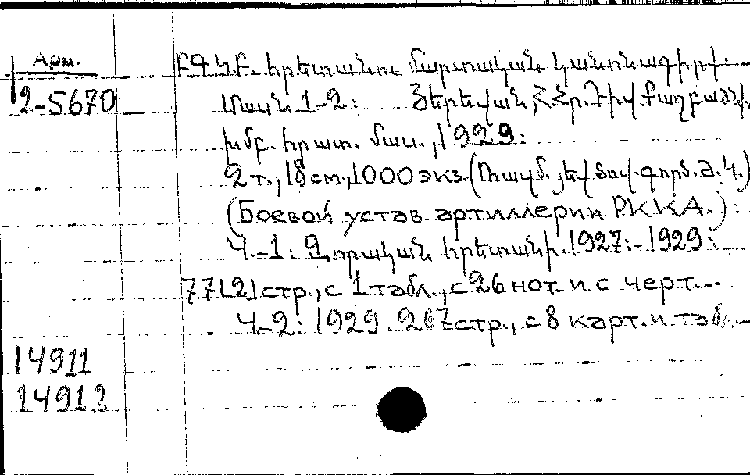 Арм.
2-5670
ԲԳԿԲ հրետանու մարտական կանոնագիրք.
Մասն 1-2: Յերեվան, ՀՀր. Դիվ.
խմբ. հրատ. մաս., 1929:
2 т., 18 см, 1000 экз. (Ռազմ.
(Боевой устав артиллерии РККА.)
Ч.-1: Զորական հրետանի. 1927:-1929:
77[2] стр., с 1 табл., с 26 нот. и с черт...
Ч-2: 1929. 267 стр., с 8 карт. и таб.
14911
14912